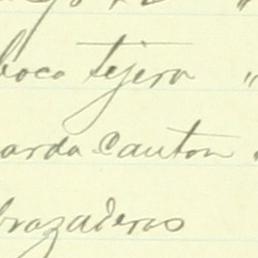 boca tejera "
arda canton
brazaderas